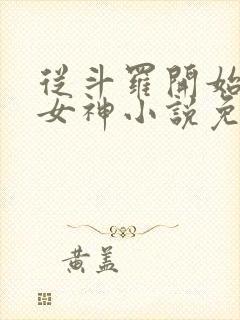 從斗羅開始
女神小說免
黃蓋